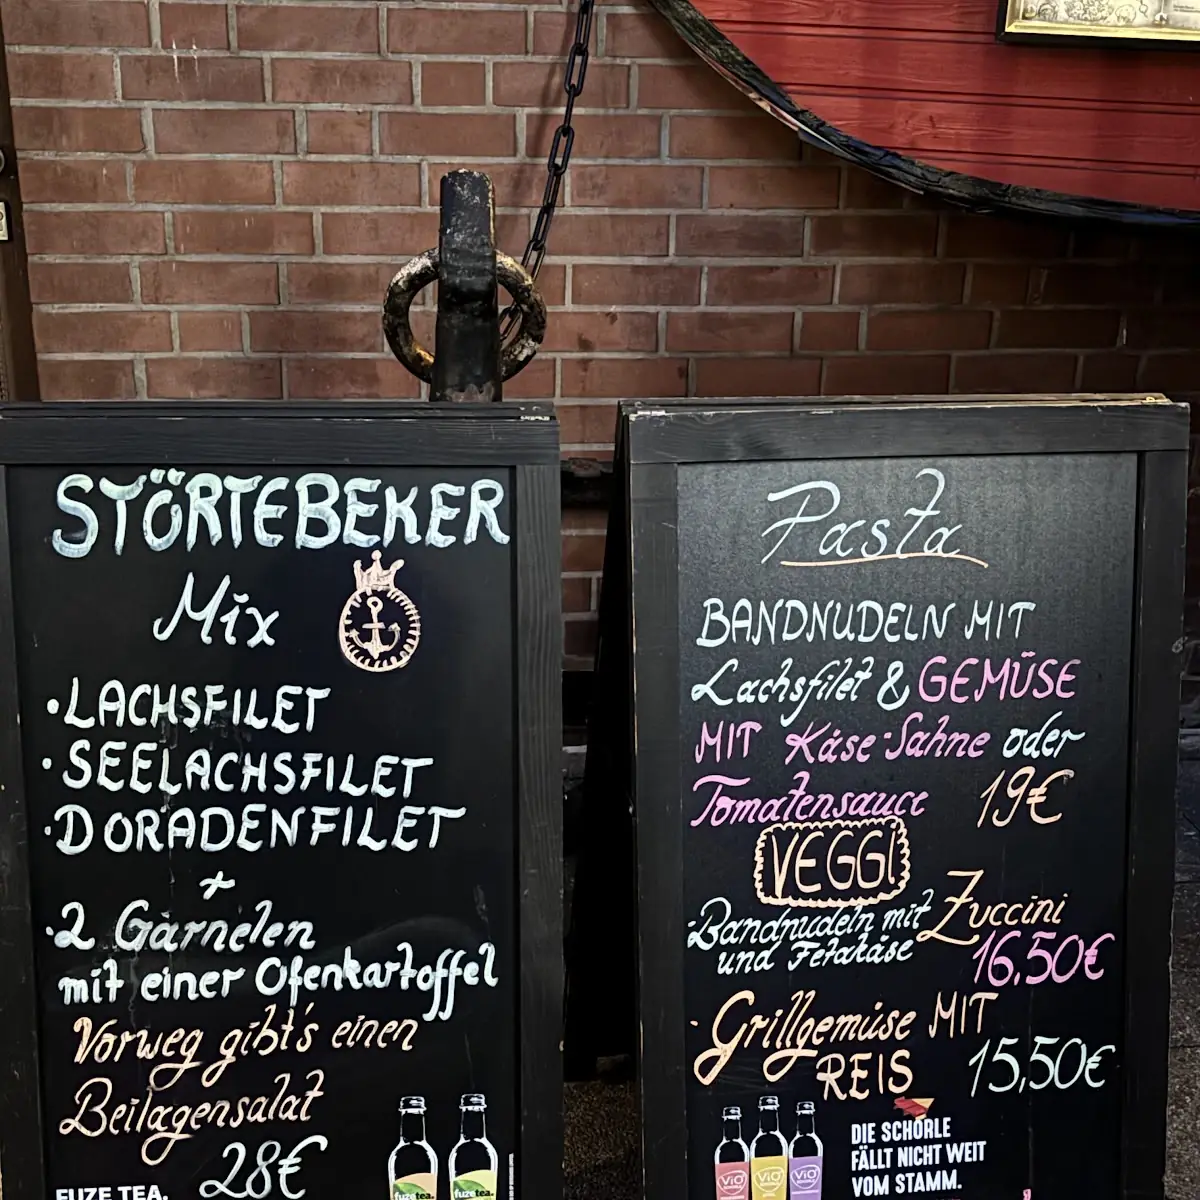 STÖRTEBEKER
Mix
·LACHSFILET
·SEELACHSFILET
·DORADENFILET
+
·2 Garnelen
mit einer Ofenkartoffel
Vorweg gibt's einen
Beilagensalat
28€
FUZE TEA.
fuzetea. fuzetea.
Pasta
BANDNUDELN MIT
Lachsfilet & GEMÜSE
MIT Käse-Sahne oder
Tomatensauce 19€
VEGGi
·Bandnudeln mit Zuccini
und Fetakäse 16,50€
·Grillgemüse MIT
REIS 15,50€
ViO ViO ViO
DIE SCHORLE
FÄLLT NICHT WEIT
VOM STAMM.